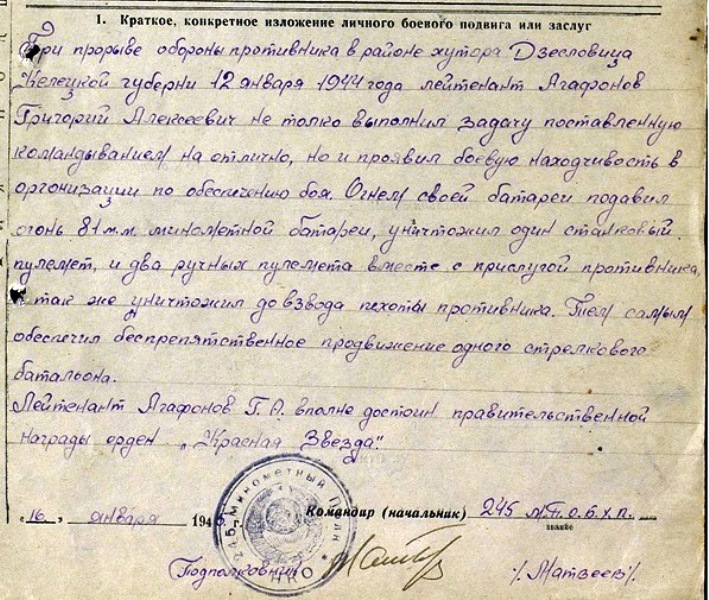 1. Краткое, конкретное изложение личного боевого подвига или заслуг
При прорыве обороны противника в районе хутора Дзесловица
Келецкой губерни 12 января 1944 года лейтенант Агафонов
Григорий Алексеевич не только выполнил задачу поставленную
командыванием на отлично, но и проявил боевую находчивость в
организации по обеспечению боя. Огнем своей батареи подавил
огонь 81 м.м. минометной батареи, уничтожил один станковый
пулемет, и два ручных пулемета вместе с прислугой противника,
а так же уничтожил до взвода пехоты противника. Тем самым
обеспечил беспрепятственное продвижение одного стрелкового
батальона.
Лейтенант Агафонов Г. А. вполне достоин правительственной
награды орден „Красная Звезда".
„16" января 194 г. Командир (начальник) 245 м.п.о.б.х.п.
звание
245 Минометный Полк * НКО
Подполковник /Матвеев/